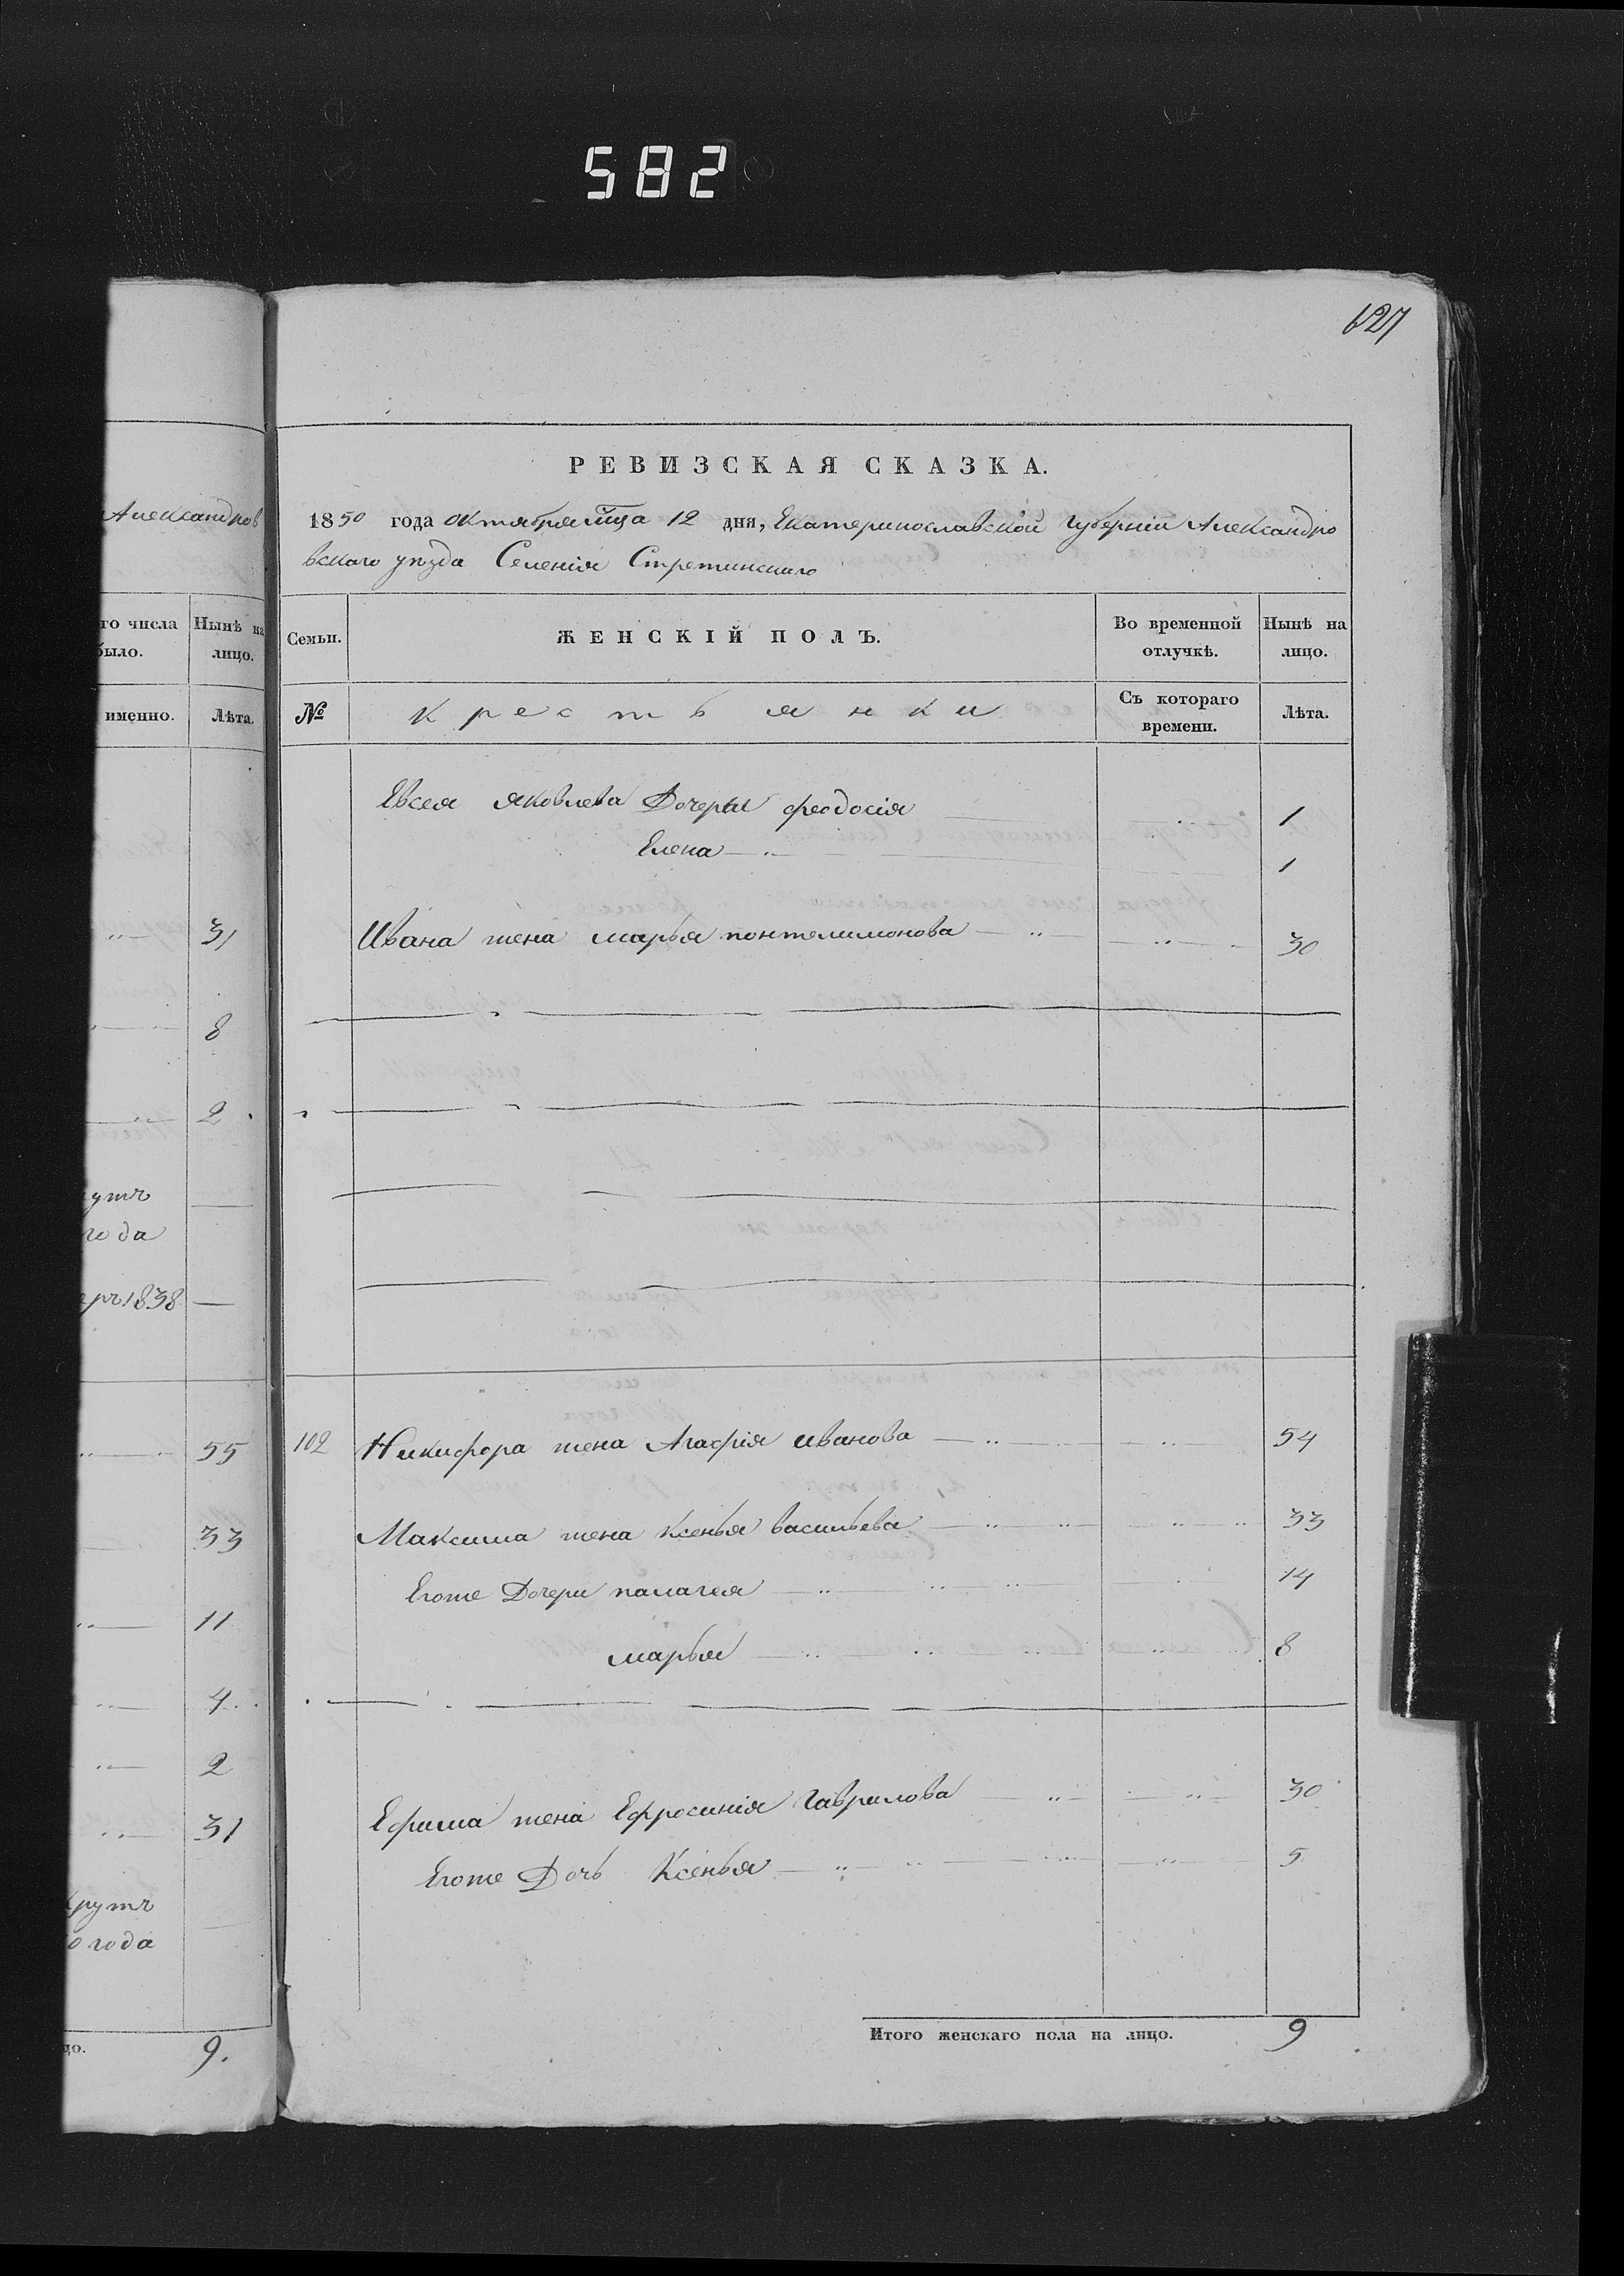 582
627
Александров
го числа было.
Нынѣ на лицо.
именно.
Лѣта.
31
8
2
утъ
года
1838
55
33
11
4
2
31
крутъ
0 года
9.
РЕВИЗСКАЯ СКАЗКА.
1850 года октября мца 12 дня, Екатеринославской губерніи Александро
вскаго уѣзда Селенія Стретинскаго
Семьи.
ЖЕНСКІЙ ПОЛЪ.
Во временной отлучкѣ.
Нынѣ на лицо.
№
Крестьянки
Съ котораго времени.
Лѣта.
Евсея яковлева Дочери феодосія 1
Елена 1
Ивана жена марья понтелимонова 30
102 Никифора жена Агафія иванова 54
Максима жена ксенья васильева 33
Егоже Дочери палагея 14
марья 8
Ефима жена Ефросинія Гаврилова 30
Егоже Дочь Ксенья 5
Итого женскаго пола на лицо. 9